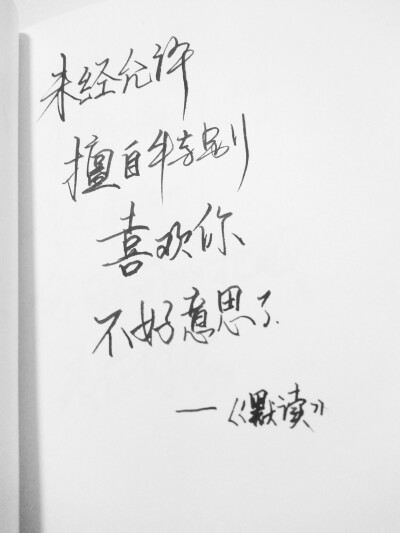 未经允许
擅自特别
喜欢你
不好意思了.
—《默读》